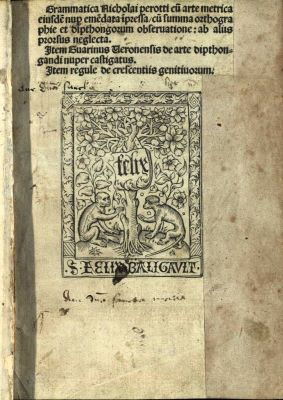 Grammatica Nicholai perotti cū arte metrica
eiusdē nup emēdata ipressa: cū summa orthogra
phie et dipthongorum obseruatione: ab alijs
prorsus neglecta.
Item Guarinus Veronensis de arte dipthon-
gandi nuper castigatus.
Item regule de crescentijs genitiuorum.
felix
S. FELIX BALIGAVIT.